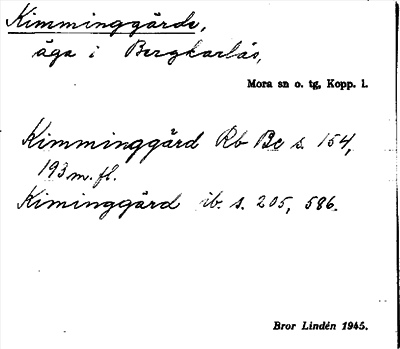 Kimminggärde,
äga i Bergkarlås,
Mora sn o. tg, Kopp. l.
Kimminggärd Rb Be s. 154,
193 m. fl.
Kiminggärd ib. s. 205, 586.
Bror Lindén 1945.